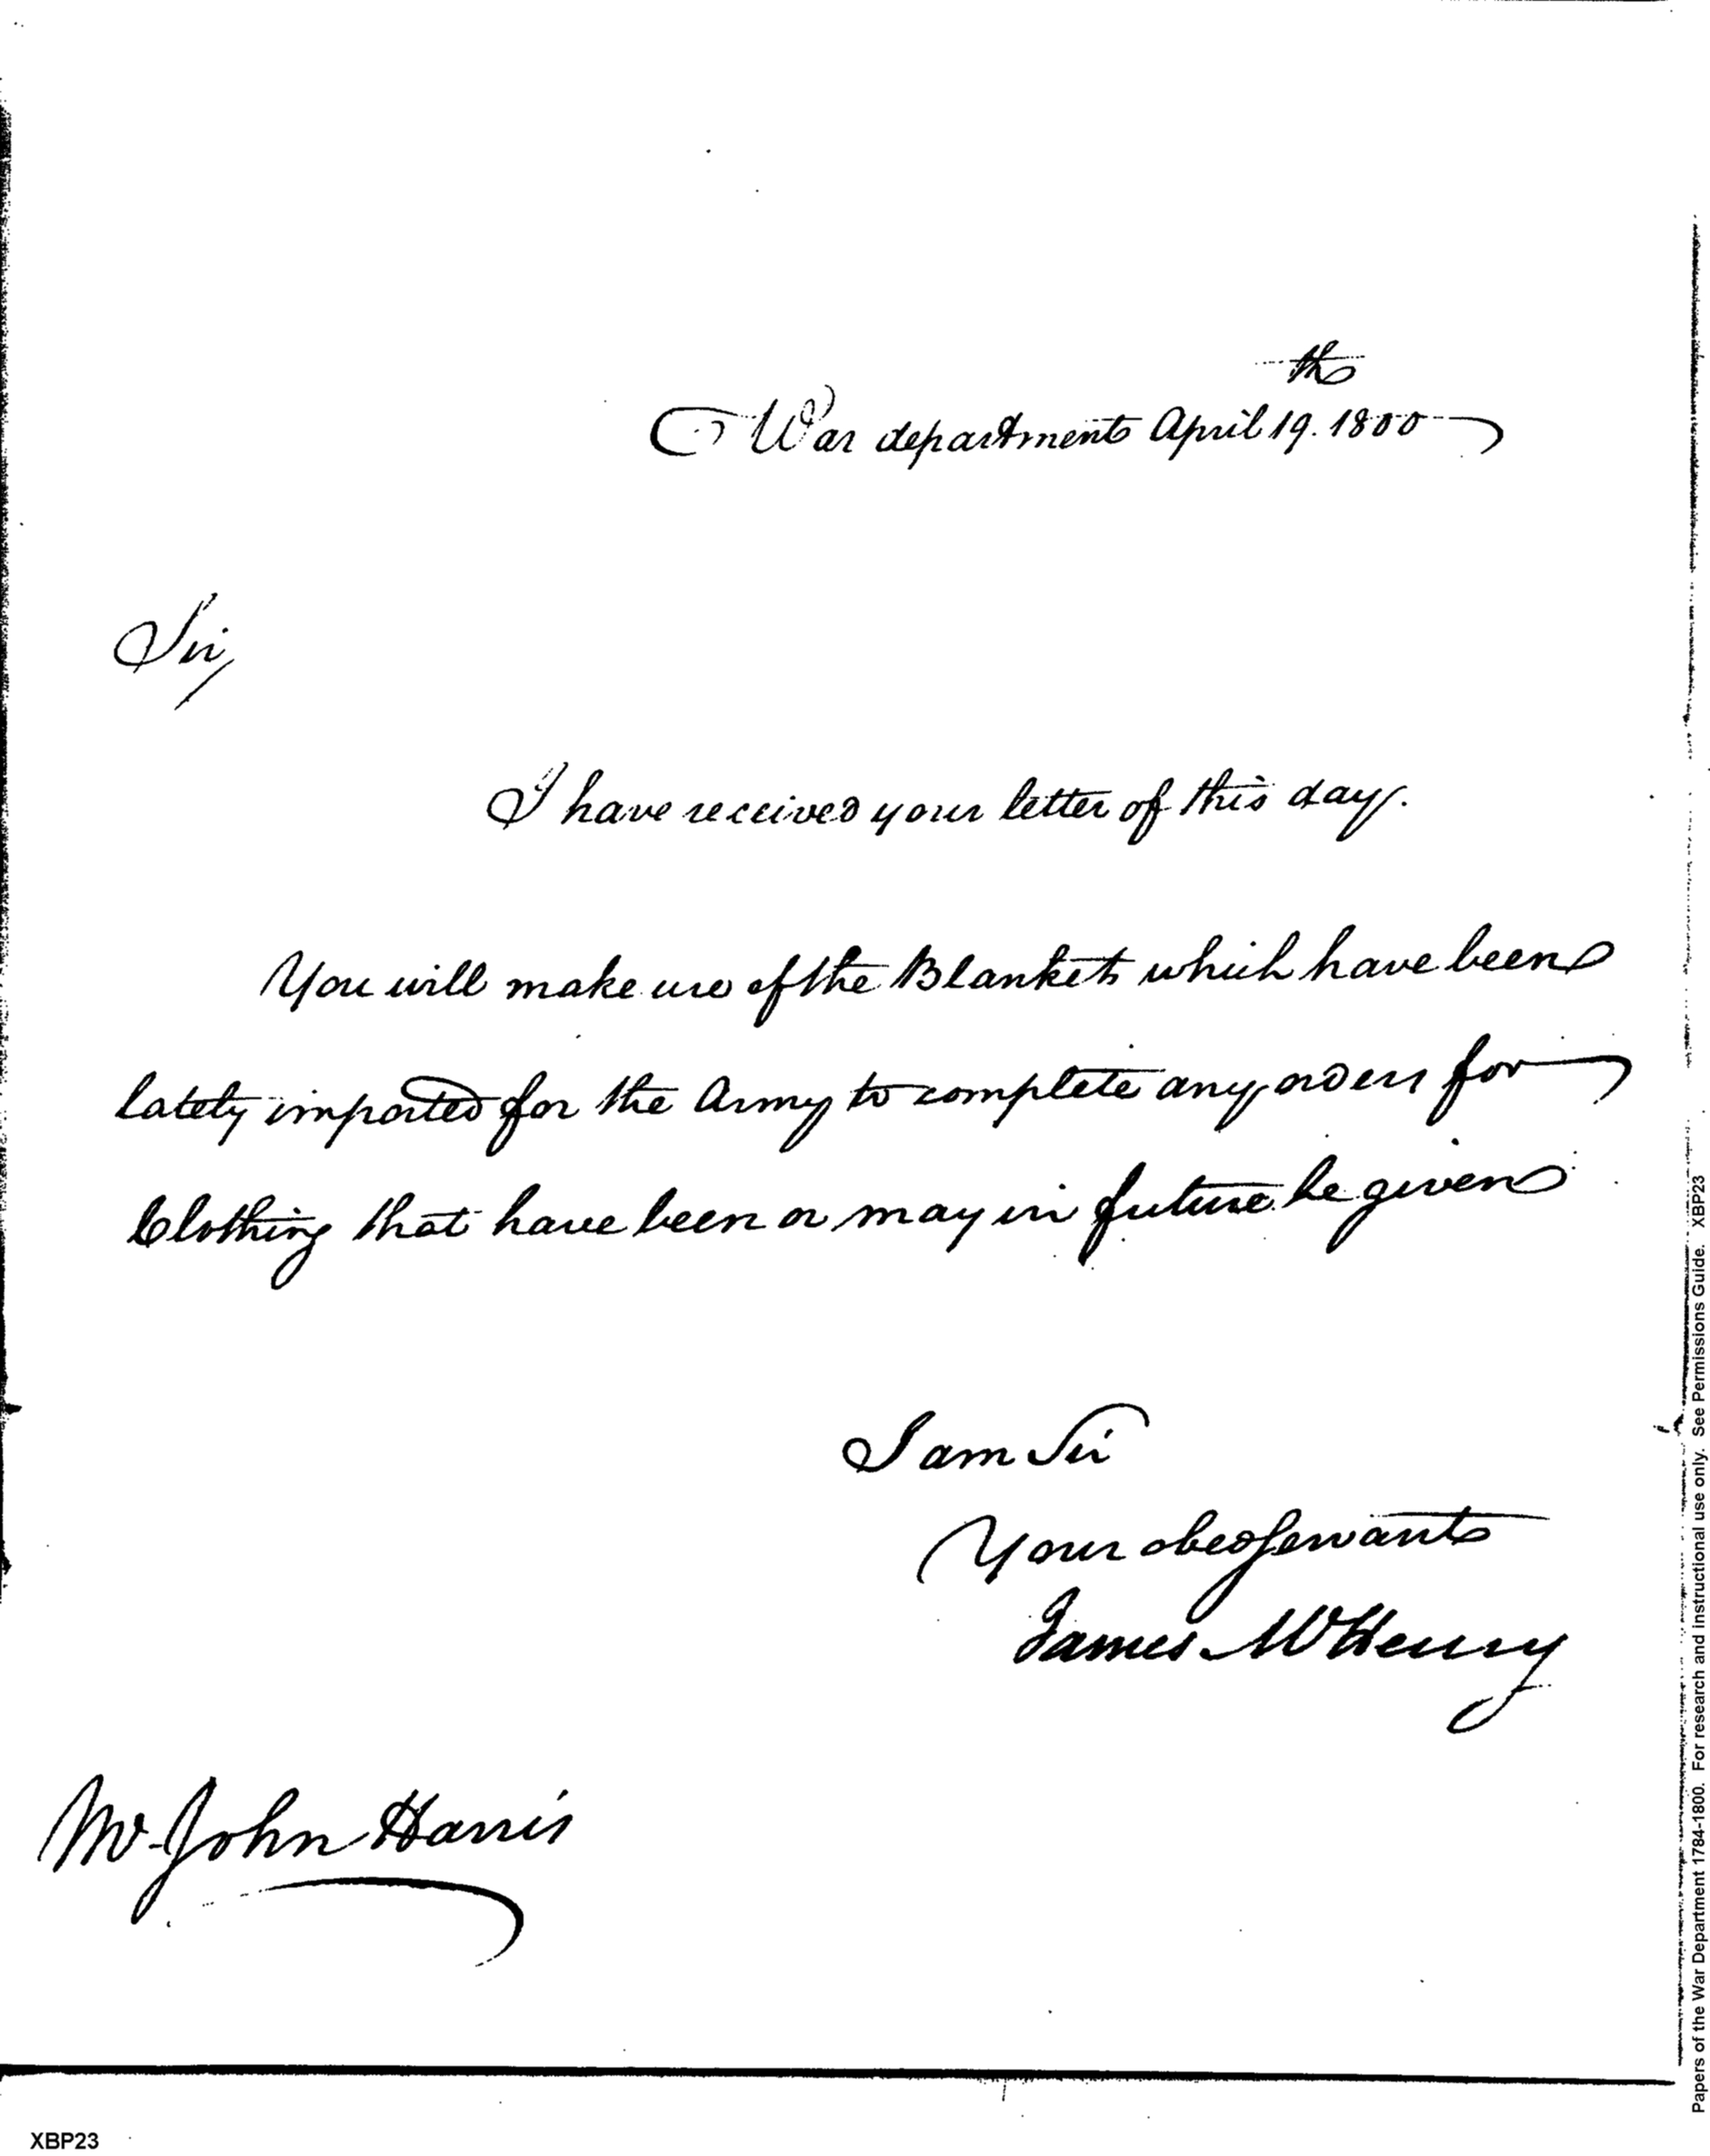 War department April 19.th 1800
Sir,
I have received your letter of this day.
You will make use of the Blankets which have been
lately imported for the Army to complete any orders for
Clothing that have been or may in future be given
I am Sir
Your obed servant
James McHenry
Mr. John Harris
Papers of the War Department 1784-1800. For research and instructional use only. See Permissions Guide. XBP23
XBP23